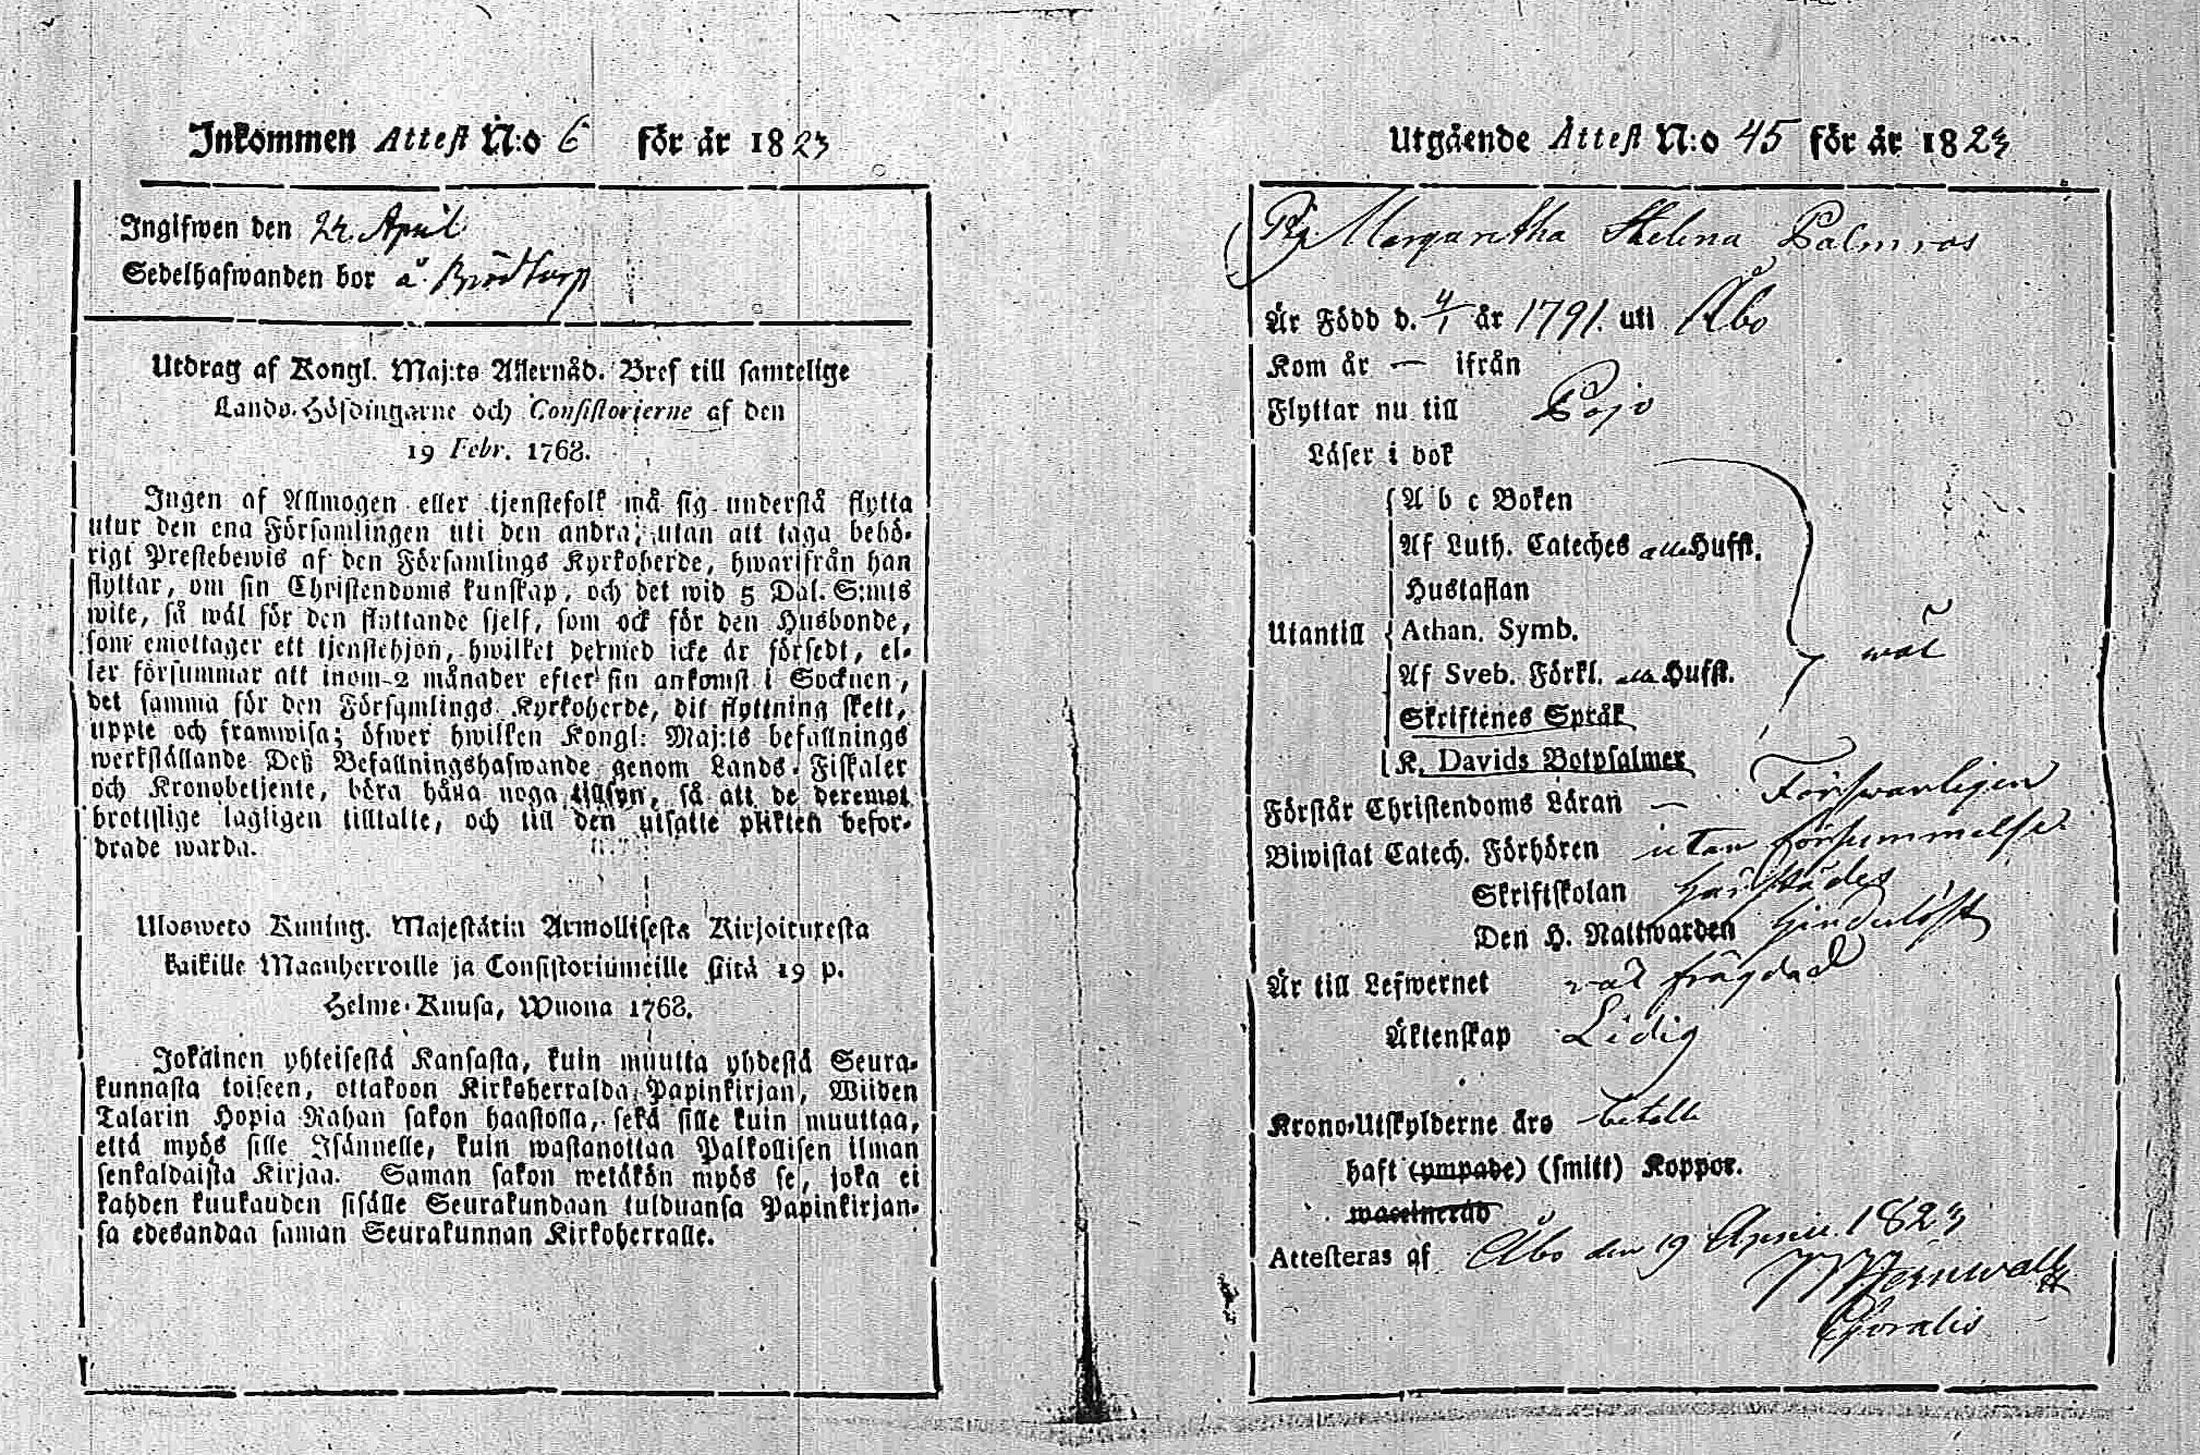 Inkommen Attest N:o 6 för år 1823
Ingifwen den 22. April
Sedelhafwanden bor å Brödtorp
Utdrag af Kongl. Maj:ts Allernåd. Bref till samtelige
Lands-Höfdingarne och Consistorierne af den
19 Febr. 1768.
Ingen af Allmogen eller tjenstefolk må sig understå flytta
utur den ena Församlingen uti den andra, utan att taga behö-
rigt Prestebewis af den Församlings Kyrkoherde, hwarifrån han
flyttar, om sin Christendoms kunskap, och det wid 5 Dal. S:mts
wite, så wäl för den flyttande sjelf, som ock för den Husbonde,
som emottager ett tjenstehjon, hwilket dermed icke är försedt, el-
ler försummar att inom 2 månader efter sin ankomst i Socknen,
det samma för den Församlings Kyrkoherde, dit flyttning skett,
uppte och framwisa; öfwer hwilken Kongl. Maj:ts befallnings
werkställande Deß Befallningshafwande genom Lands-Fiskaler
och Kronobetjente, böra hålla noga tillsyn, så att de deremot
brottslige lagligen tilltalte, och till den utsatte plikten befor-
drade warda.
Ulosweto Kuning. Majestätin Armollisesta Kirjoituresta
kaikille Maanherroille ja Consistoriumeille siitä 19 p.
Helme-Kuusa, Wuona 1768.
Jokainen yhteisestä Kansasta, kuin muutta yhdestä Seura-
kunnasta toiseen, ottakoon Kirkoherralda Papinkirjan, Wiiden
Talarin Hopia Rahan sakon haastolla, sekä sille kuin muuttaa,
että myös sille Isännelle, kuin wastanottaa Palkollisen ilman
senkaldaista Kirjaa. Saman sakon wetäkön myös se, joka ei
kahden kuukauden sisälle Seurakundaan tulduansa Papinkirjan-
sa edesandaa saman Seurakunnan Kirkoherralle.
Utgående Attest N:o 45 för år 1823
Pig. Margaretha Helena Palmros
Är Född d. 4/1 år 1791. uti Åbo
Kom år — ifrån
Flyttar nu till Pojo
Läser i bok
A b c Boken
Af Luth. Cateches alla Hufst.
Hustaflan
Utantill Athan. Symb. wäl
Af Sveb. Förkl. alla Hufst.
Skriftenes Språk
K. Davids Botpsalmer
Förstår Christendoms Läran — Försvarligen
Biwistat Catech. Förhören utan försummelse
Skriftskolan härstädes
Den H. Nattwarden hinderlöst
Är till Lefwernet wäl frägdad
Äktenskap Ledig
Krono-Utskylderne äro betalte
haft (ympade) (smitt) Koppor.
waccinerad
Attesteras af Åbo den 19 April 1823